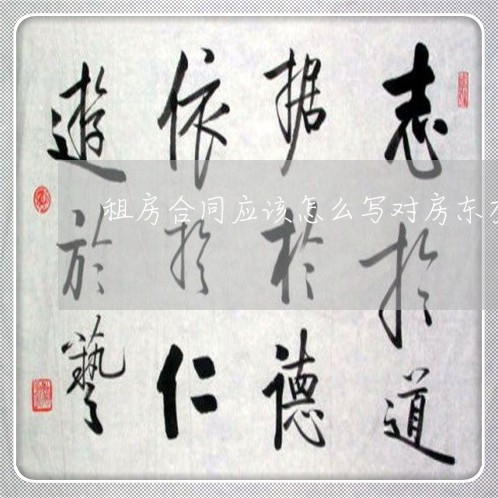 志於道
据於德
依於仁
遊於藝
租房合同应该怎么写对房东